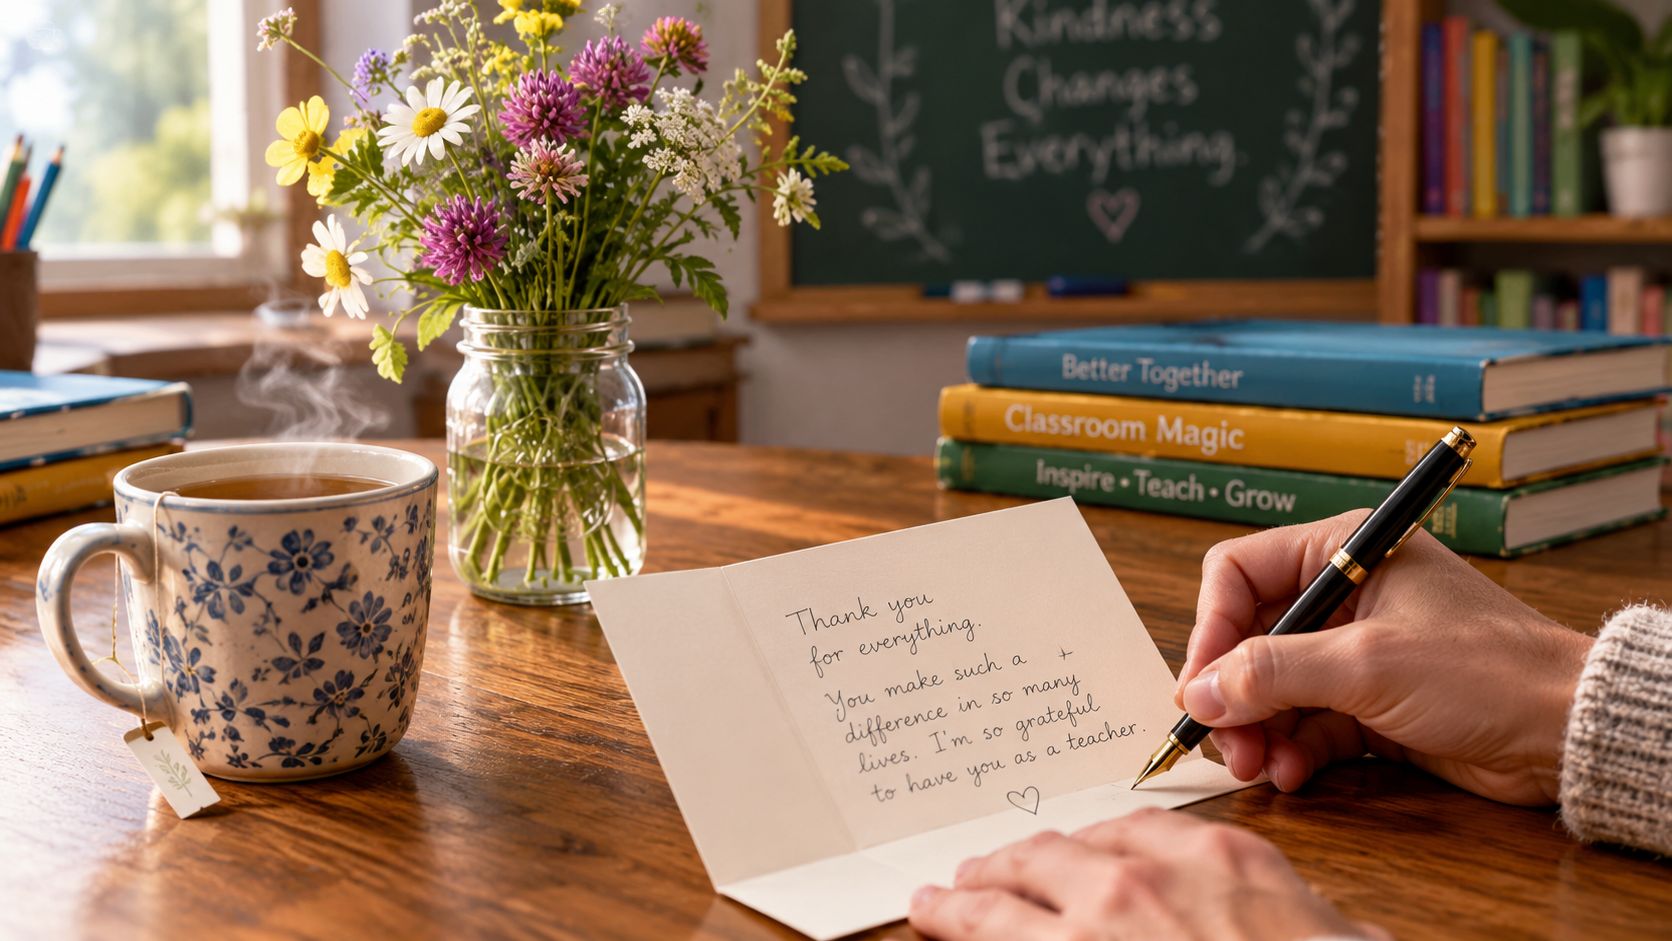 Kindness
Changes
Everything.
Better Together
Classroom Magic
Inspire • Teach • Grow
Thank you
for everything.
You make such a
difference in so many
lives. I'm so grateful
to have you as a teacher.